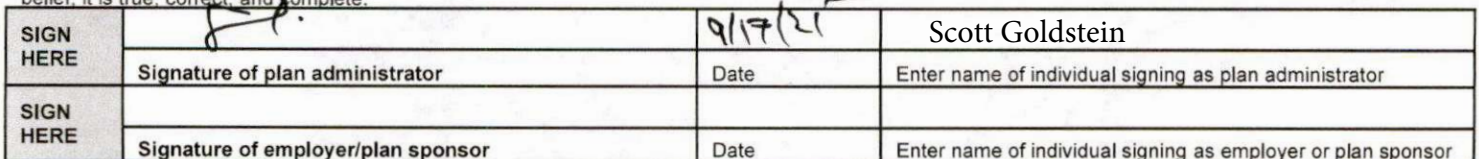 belief, it is true, correct, and complete.
SIGN HERE
9/17/21
Scott Goldstein
Signature of plan administrator
Date
Enter name of individual signing as plan administrator
SIGN HERE
Signature of employer/plan sponsor
Date
Enter name of individual signing as employer or plan sponsor